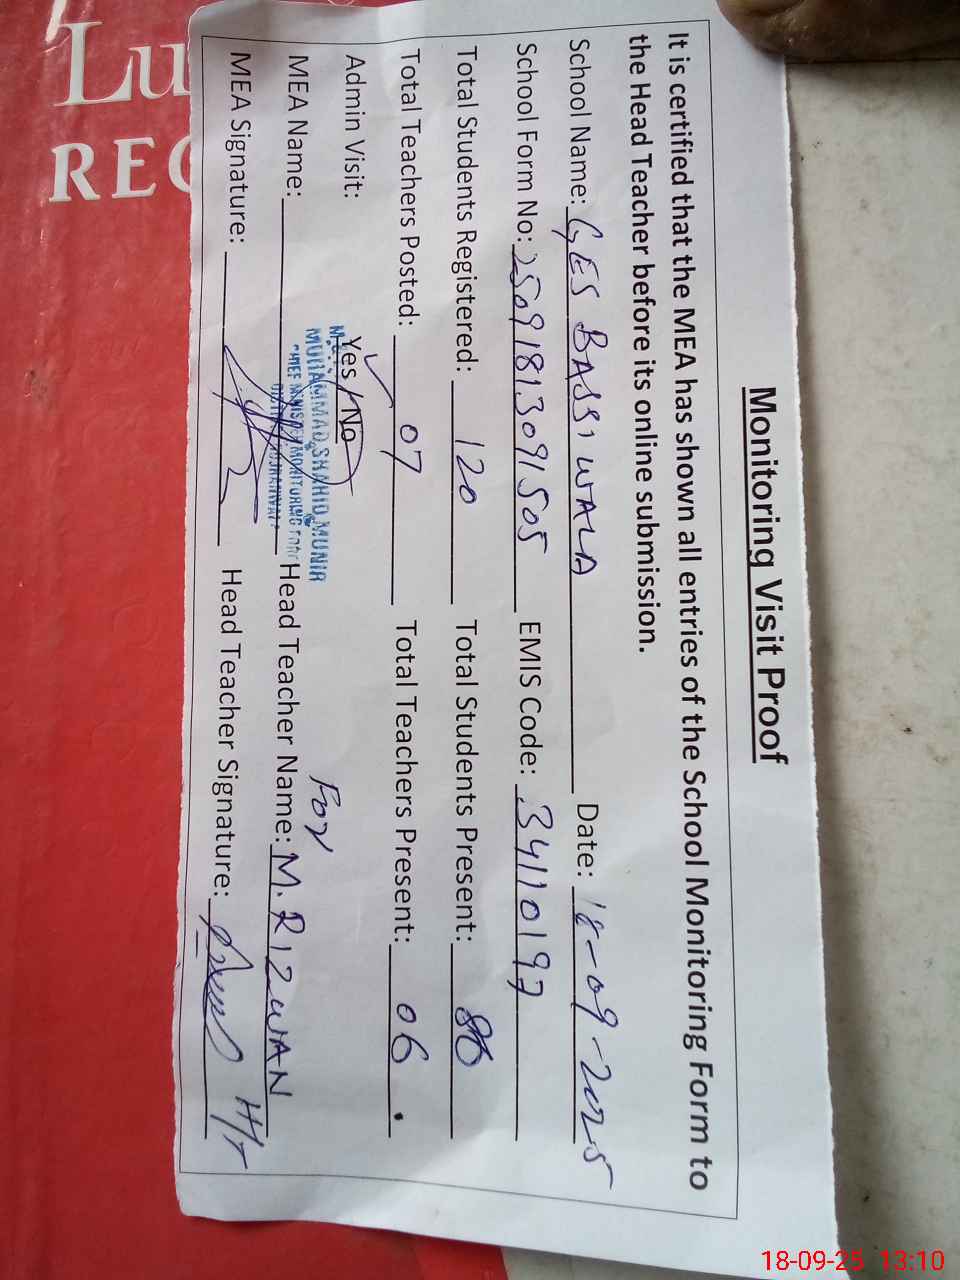 Monitoring Visit Proof
It is certified that the MEA has shown all entries of the School Monitoring Form to
the Head Teacher before its online submission.
School Name: GES BASSI WALA Date: 18-09-2025
School Form No: 25091813091505 EMIS Code: 34110197
Total Students Registered: 120 Total Students Present: 86
Total Teachers Posted: 07 Total Teachers Present: 06
Admin Visit: Yes / No For
MUHAMMAD SHAHID MUNIR
CHIEF MINISTER MONITORING FORCE
MEA Name: Head Teacher Name: M. RIZWAN
MEA Signature: Head Teacher Signature: H/T
Lu
REG
18-09-25 13:10